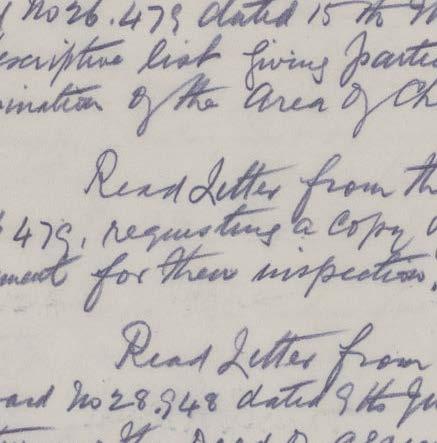 No 26.479 dated 15th
escriptive list giving partic
ination of the area of Ch
Read Letter from th
479, requesting a copy
ment for their inspection,
Read Letter from
ard No 28.948 dated 9th Ju